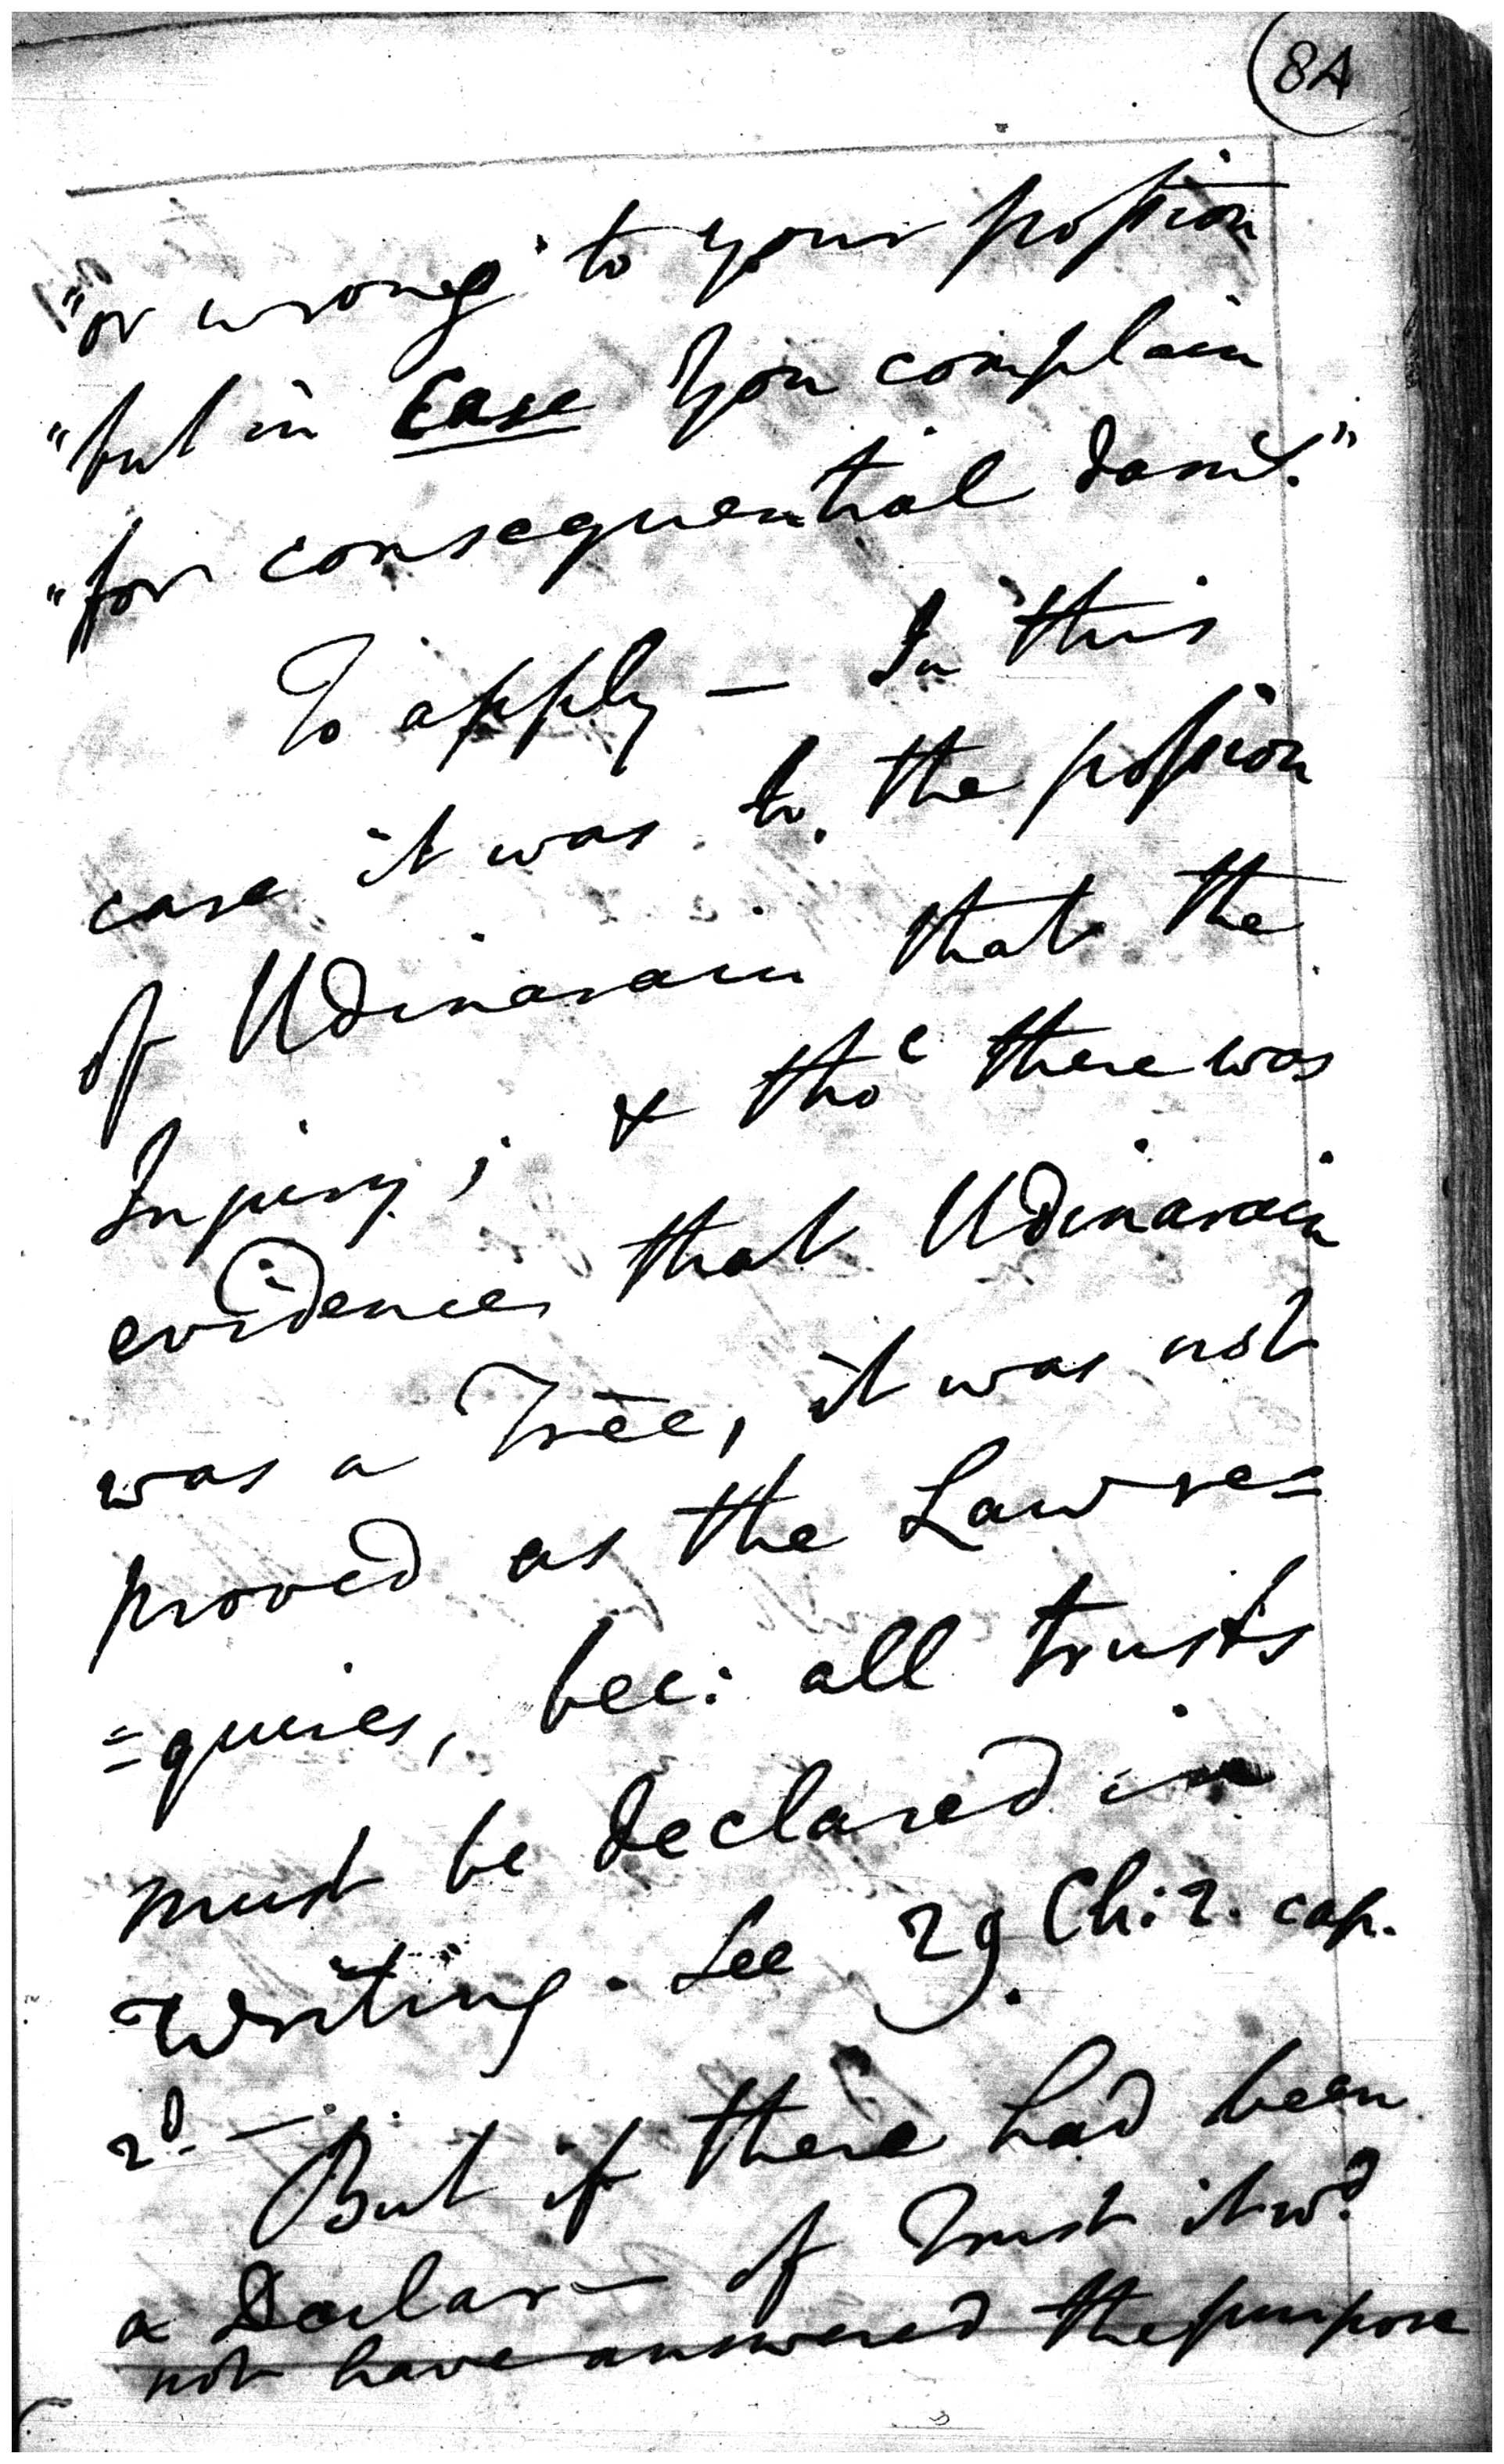 84
"or wrong to your possion
"but in Case you complain
"for consequential dam:"
To apply — In this
case it was to the possion
of Udinarain that the
Injury; & tho' there was
evidence that Udinarain
was a Tree, it was not
proved as the Law re=
=quires, bec: all trusts
must be declared in
Writing. See 29. Ch: 2. cap.
2d. —
But if there had been
a Declar— of Trust it wd.
not have answered the purpose